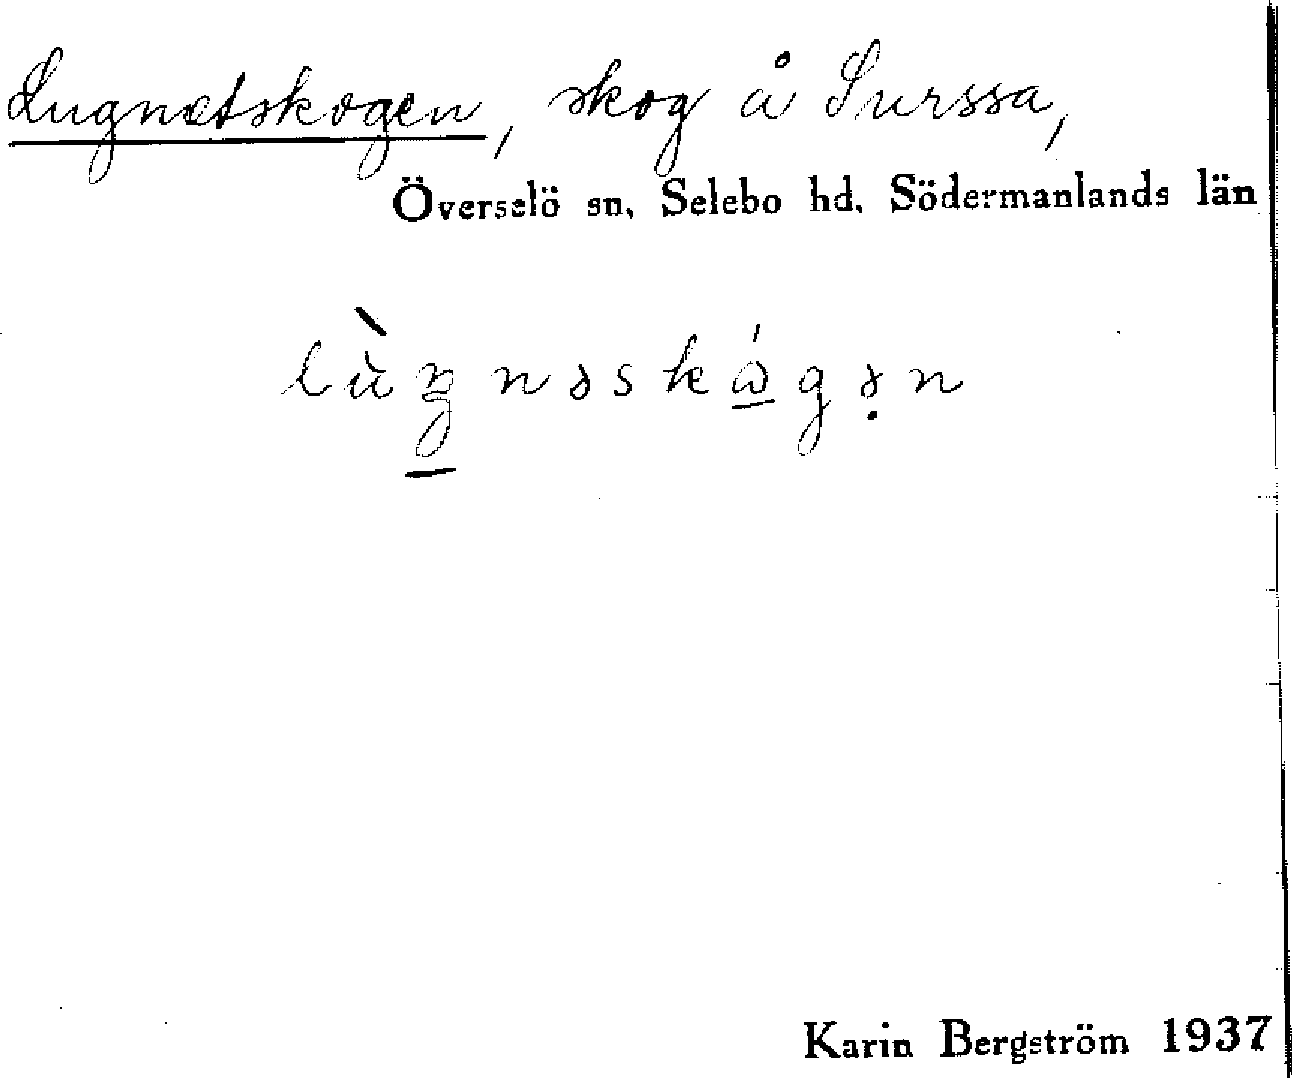 Lugnetskogen, skog å Surssa,
Överselö sn, Selebo hd. Södermanlands län
Karin Bergström 1937